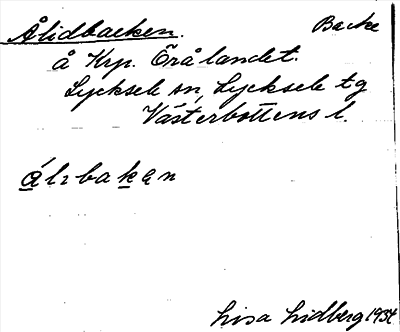 Ålidbacken. Backe
å Krp. Örålandet.
Lycksele sn, Lycksele tg
Västerbottens l.
álıbakan
Lisa Lidberg 1934